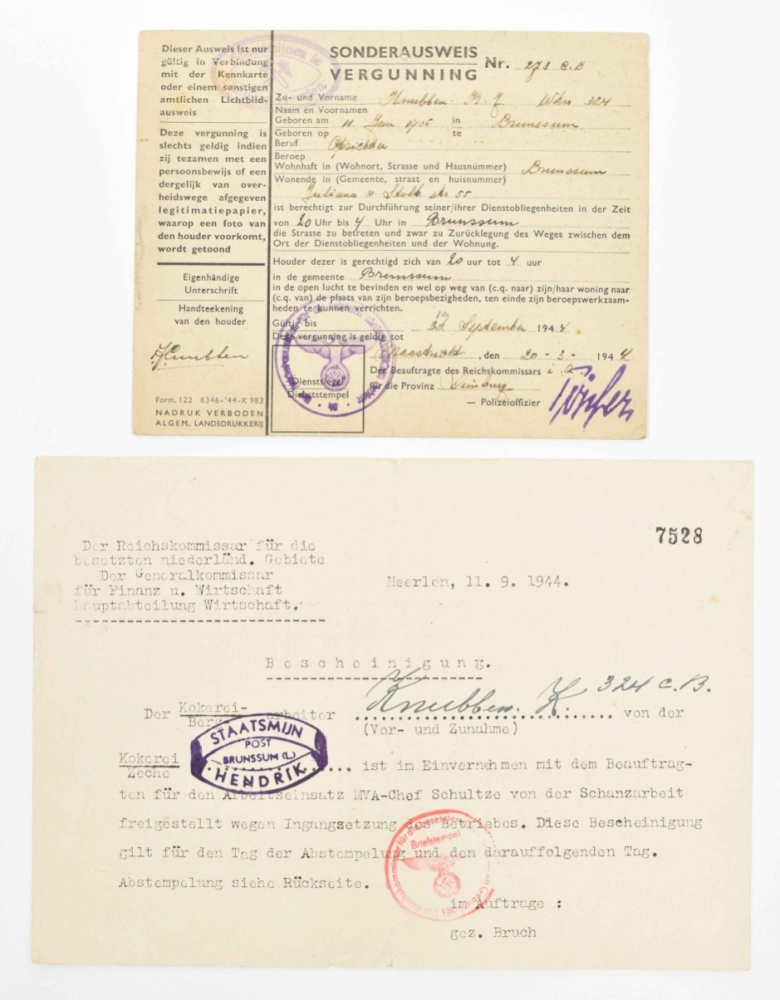 Dieser Ausweis ist nur
gültig in Verbindung
mit der Kennkarte
oder einem sonstigen
amtlichen Lichtbild-
ausweis
Deze vergunning is
slechts geldig indien
zij tezamen met een
persoonsbewijs of een
dergelijk van over-
heidswege afgegeven
legitimatiepapier,
waarop een foto van
den houder voorkomt,
wordt getoond
Eigenhändige
Unterschrift
Handteekening
van den houder
Knubben
Form. 122 8346-'44-K 983
NADRUK VERBODEN
ALGEM. LANDSDRUKKERIJ
SONDERAUSWEIS
VERGUNNING
Nr. 273 C.B
Zu- und Vorname Knubben. 324
Naam en Voornamen
Geboren am 11 in Brunssum
Geboren op te
Beruf
Beroep
Wohnhaft in (Wohnort, Strasse und Hausnummer) Brunssum
Wonende in (Gemeente, straat en huisnummer)
Juliana v. Stolb str 55
ist berechtigt zur Durchführung seiner/ihrer Dienstobliegenheiten in der Zeit
von 20 Uhr bis 4 Uhr in Brunssum
die Strasse zu betreten und zwar zu Zurücklegung des Weges zwischen dem
Ort der Dienstobliegenheiten und der Wohnung.
Houder dezer is gerechtigd zich van 20 uur tot 4 uur
in de gemeente Brunssum
in de open lucht te bevinden en wel op weg van (c.q. naar) zijn/haar woning naar
(c.q. van) de plaats van zijn beroepsbezigheden, ten einde zijn beroepswerkzaam-
heden te kunnen verrichten.
Gültig bis
Deze vergunning is geldig tot September 1944
Maastricht, den 20-3-1944
Der Beauftragte des Reichskommissars i.A.
für die Provinz Limburg
— Polizeioffizier
Dienstsiegel
Dienststempel
7528
Der Reichskommissar für die
besetzten niederländ. Gebiete
Der Generalkommissar
für Finanz u. Wirtschaft
Hauptabteilung Wirtschaft.
Heerlen, 11. 9. 1944.
Bescheinigung.
Der Kokerei- arbeiter Knubben. 324 C.B. von der
Berg-
(Vor- und Zunahme)
STAATSMIJN
POST
BRUNSSUM (L.)
HENDRIK
Kokerei
Zeche ist im Einvernehmen mit dem Beauftrag-
ten für den Arbeitseinsatz MVA-Chef Schultze von der Schanzarbeit
freigestellt wegen Ingangsetzung des Betriebes. Diese Bescheinigung
gilt für den Tag der Abstempelung und den darauffolgenden Tag.
Abstempelung siehe Rückseite.
Briefstempel
im Auftrage :
gez. Bruch